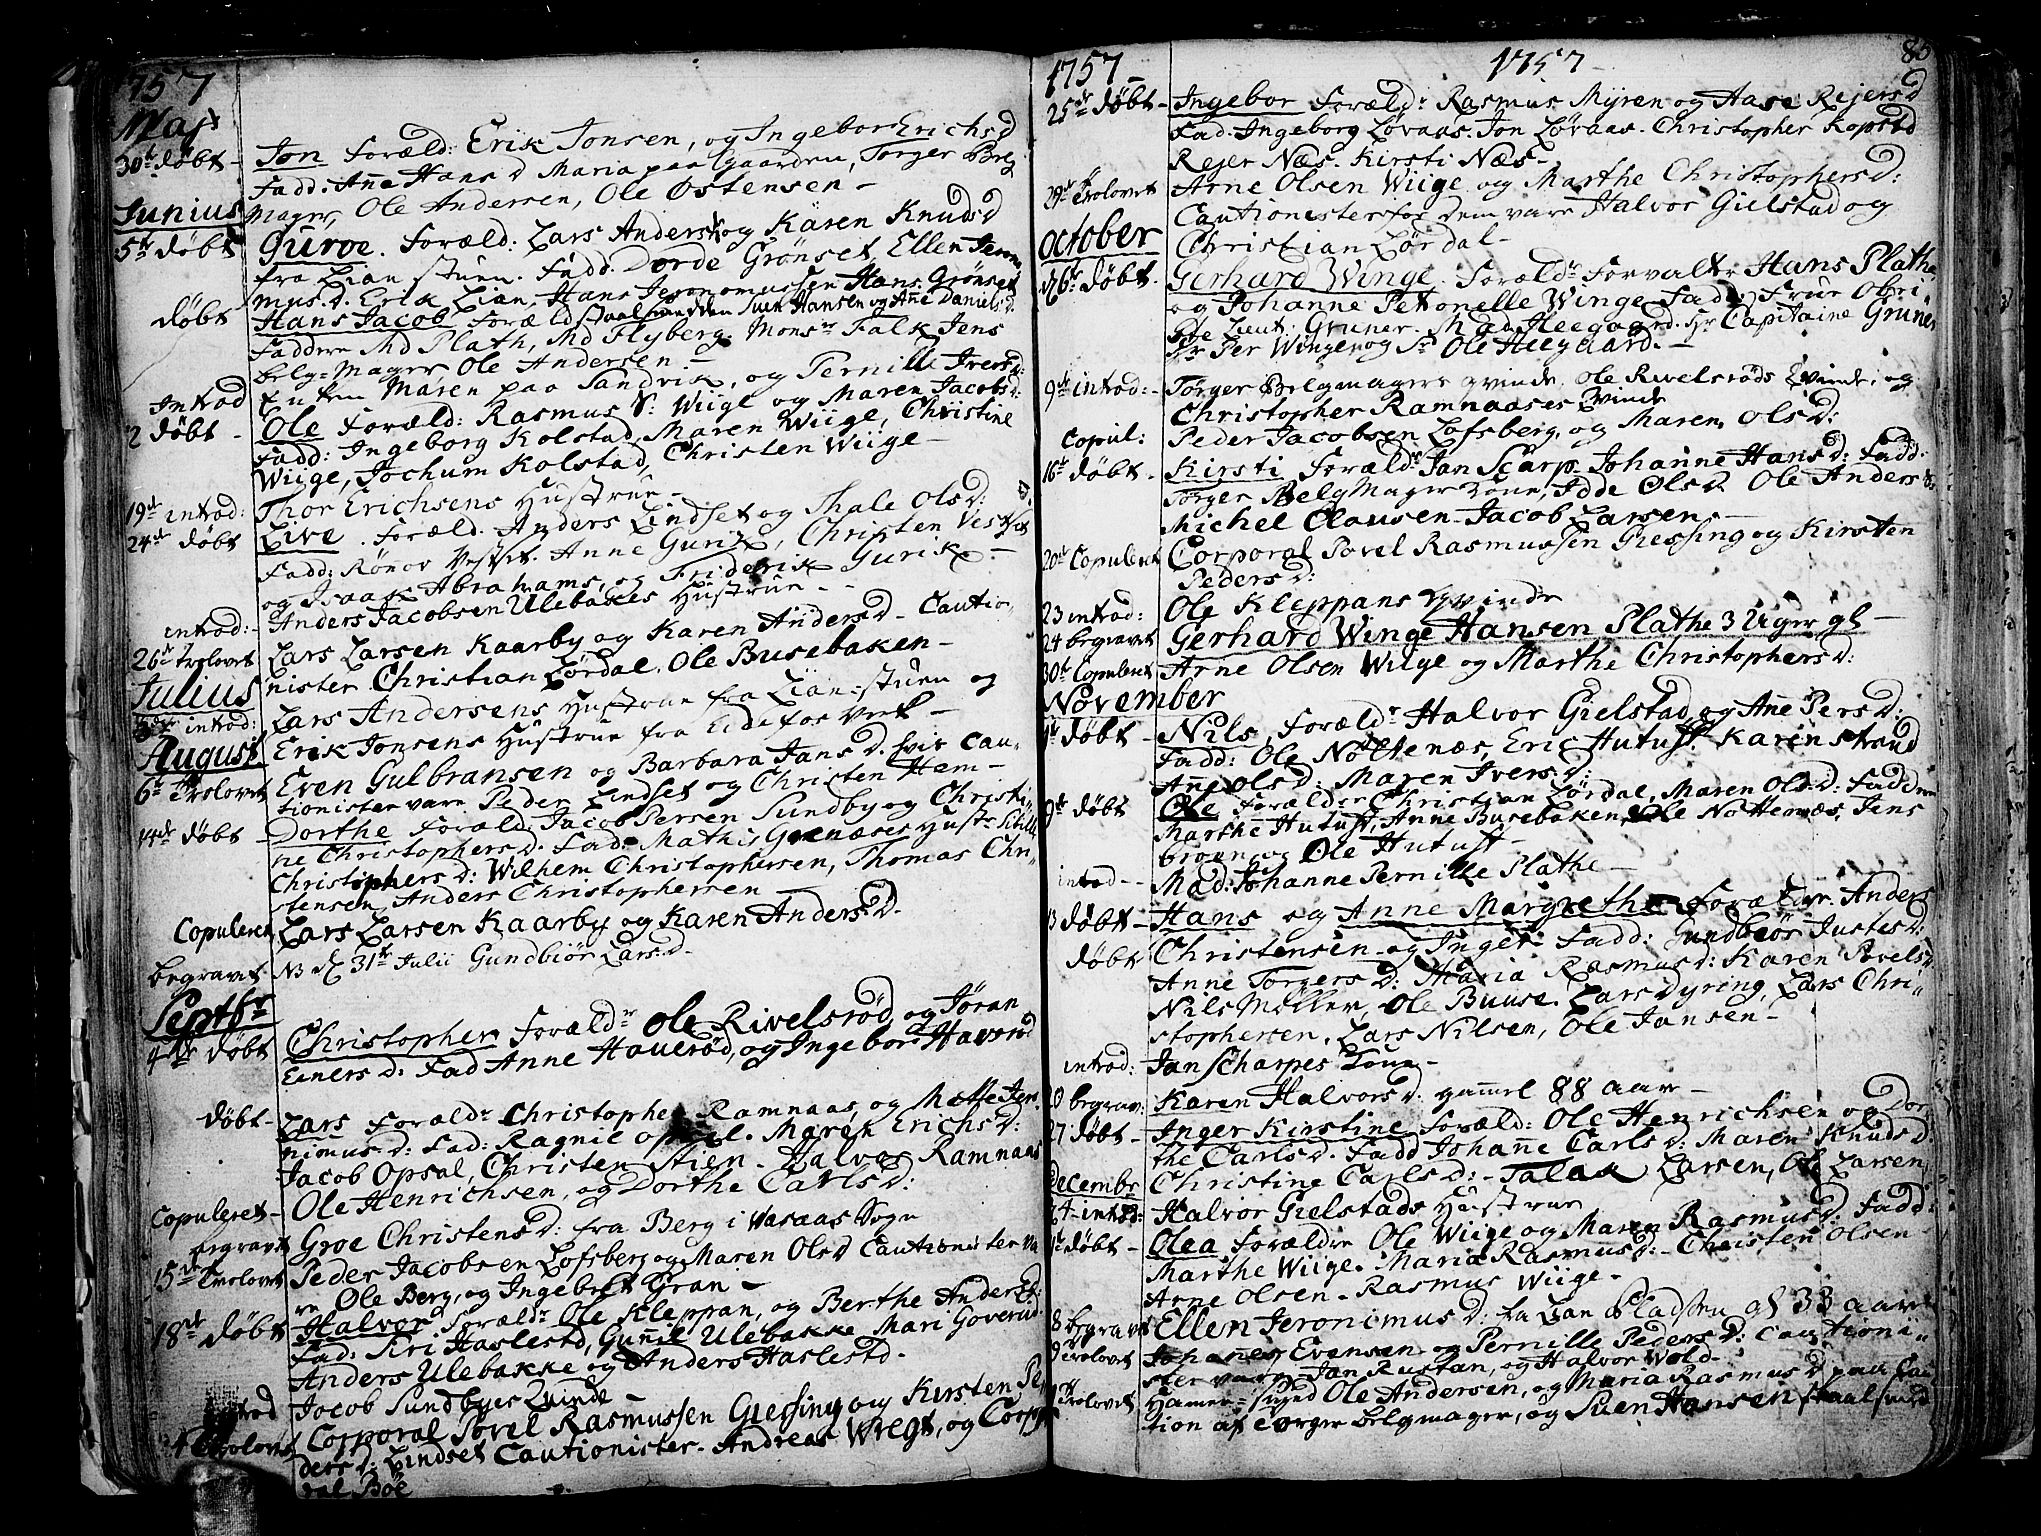 1757
Maj
30 døbt - Jon Foræld: Erik Jonsen, og Ingebor Erichs D
Fadd: Anne Hans D Maria paa Gaarden, Torger Belg
Mager, Ole Andersen, Ole Østensen -
Junius
5te døbt Guroe. Foræld: Lars Anders og Karen Knuds D
fra Lian stuen. Fadd. Dorde Grønset, Ellen Jeron
mus. D. Erik Lian, Hans Jeronomussen Hans Grønset
døbt Hans Jacob Foræld Staalsmeden Suen Hansen og Ane Daniels D.
Faddere Md Plath, Md Flyberg. Monsr Falk Jens
belg-Mager Ole Andersen -
Introd Enken Maren paa Sandvik, og Pernille Ivers D:
2 døbt - Ole Foræld: Rasmus Wiige og Maren Jacobs D:
Fadd: Ingeborg Kolstad, Maren Wiige, Christine
Wiige, Jochum Kolstad, Christen Wiige -
19de introd: Thor Erichsens Hustrue -
24de døbt Live. Foræld. Anders Lindset og Thale Ols D:
Fadd: Rønov Anne Gurik, Christen
og Isaak Abrahams, og Friderik Gurik -
introd: - Anders Jacobsen Ulebakes Hustrue -
26de Trolovet Lars Larsen Kaarby og Karen Anders D - Cautio,
nister Christian Lørdal. Ole Busebaken -
Julius
introd: Lars Andersens Hustrue fra Lian-stuen og
Erik Jonsens Hustrue fra Eidefos Verk -
August
6te Trolovet Even Gulbransen og Barbara Jans D. Cau-
tionister vare Peder Lindset og Christen Hem -
14de døbt Dorthe Foræld. Jacob Persen Sundby og Christi-
ne Christophers D. Fad. Mathis Grenæses Hustr
Christophers D: Wilhem Christophersen, Thomas Chri-
stensen, Anders Christophersen -
Copuleret Lars Larsen Kaarby og Karen Anders D.
begravet NB 31te Julii Gundbiør Lars D.
Septbr
4de døbt Christopher Forældr Ole Rivelsrød og Jøran
Einers D: Fad Anne Hauerød, og Ingebor Haverød
døbt - Lars Forældr Christopher Ramnaas, og Mette Jero
nimus D: Fad: Ragnil Opsal. Maren Erichs D:
Jacob Opsal, Christen Stien. Halvor Ramnaas
Copuleret - Ole Henrichsen, og Dorthe Carls D:
begravet Groe Christens D: fra Berg i Waraas Sogn
15de Trolovet Peder Jacobsen Lofsberg og Maren Ols D Cautionister va
re Ole Berg, og Ingebret Gran -
18de døbt Halvor Forældr Ole Kleppan, og Berthe Anders D:
Fad: Kri Haslestd, Gunil Ulebakke Mari Goverud
Anders Ulebakke og Anders Haslestd -
introd Jacob Sundbyes Qvinde -
24 Trolovet Corporal Povel Rasmussen Giessing og Kirsten Pe,
ders D: Lindset Cautionister - Andreas Wregt, og Corpo
ral Bøe
1757 1757 85
25de døbt - Ingebor Foræld: Rasmus Myren og Aase Rejers D
Fad: Ingeborg Løvaas. Jon Løvaas. Christopher Kopstd
Rejer Næs. Kirsti Næs -
29de Trolovet Arne Olsen Wiige og Marthe Christophers D:
Cautionister for dem vare Halvor Gielstad og
Christian Lørdal -
October
døbt. Gerhard Winge. Foræld: Forvalter Hans Plathe
og Johanne Petronelle Winge Fad: Frue Obri-
ste Lieut: Gruner. Mad Heegaard. Hr Capitaine Gruner
Hr Per Winge og Sr Ole Heegaard. -
9de introd: - Torger Belgmagers qvinde, Ole Rivelsrøds Qvinde, og
Christopher Ramnaases Qvinde
Copul: Peder Jacobsen Lofsberg, og Maren Ols D:
16de døbt - Kirsti Foræld Jan Scarp Johanne Hans D: Fadd.
Torger BelgMager Kone, Idde Ols D Ole Anders
Michel Clausen - Jacob Larsen -
20de Copuleret Corporal Povel Rasmussen Giessing og Kirsten
Peders D:
23 introd: Ole Kleppans Qvinde
24 begravet Gerhard Winge Hansen Plathe 3 Uger gl -
30te Copuleret Arne Olsen Wiige og Marthe Christophers D:
November
døbt - Nils, Forældr Halvor Gielstad og Ane Pers D:
Fadd: Ole Nøttenæs, Eric Hutuft Karin Strand
Ane Ols D: Maren Ivers D:
9de døbt Ole Forældr Christian Lørdal, Maren Ols D: Faddere
Marthe Hutuft, Anne Busebaken, Ole Nottenæs, Jens
broen og Ole Hutuft -
introd - Mad: Johanne Pernille Plathe -
13 døbt - Hans og Anne Margrethe Forældr. Anders
døbt Christensen og Inger Fadd: Gundbiør Justes D:
Anne Torgers D: Maria Rasmus D: Karen Povels D
Nils Møller, Ole Buuse. Lars Dyring, Lars Chri-
stophersen, Lars Nilsen, Ole Jansen -
introd: Jan Scharpes Kone -
begrav: Karen Halvors D: gammel 88 aar -
27 døbt - Inger Kirstine Foræld: Ole Henrichsen og Dor
the Carls D. Fadd Johanne Carls D: Maren Knuds D:
Christine Carls D: - Talak Larsen, Ole Larsen
Decembr
4 introd: Halvor Gielstads Hustrue
døbt - Olea Forældre Ole Wiige og Maren Rasmus D: Fadd:
Marthe Wiige. Maria Rasmus D: - Christen Olsen -
Arne Olsen - Rasmus Wiige -
8 begravet Ellen Jeronimus D: fra Lian Pladsen gl 33 aar
Trolovet Johanes Evensen og Pernille Peders D: Cautioni-
ster vare Jan Rustan, og Halvor Wold -
Trolovet Hamer-smed Ole Andersen, og Maria Rasmus D paa Cau
tion af Torger Belgmager, og Suen Hansen Staalsmed